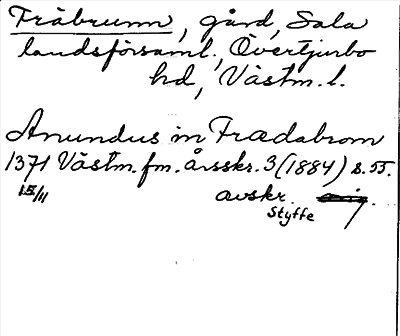 Fräbrunn, gård, Sala
landsförsaml., Övertjurbo
hd, Västm. l.
Anundus in Frædabrom
1371 Västm. fm. årsskr. 3 (1884) s. 55.
15/11 avskr. orig.
Styffe